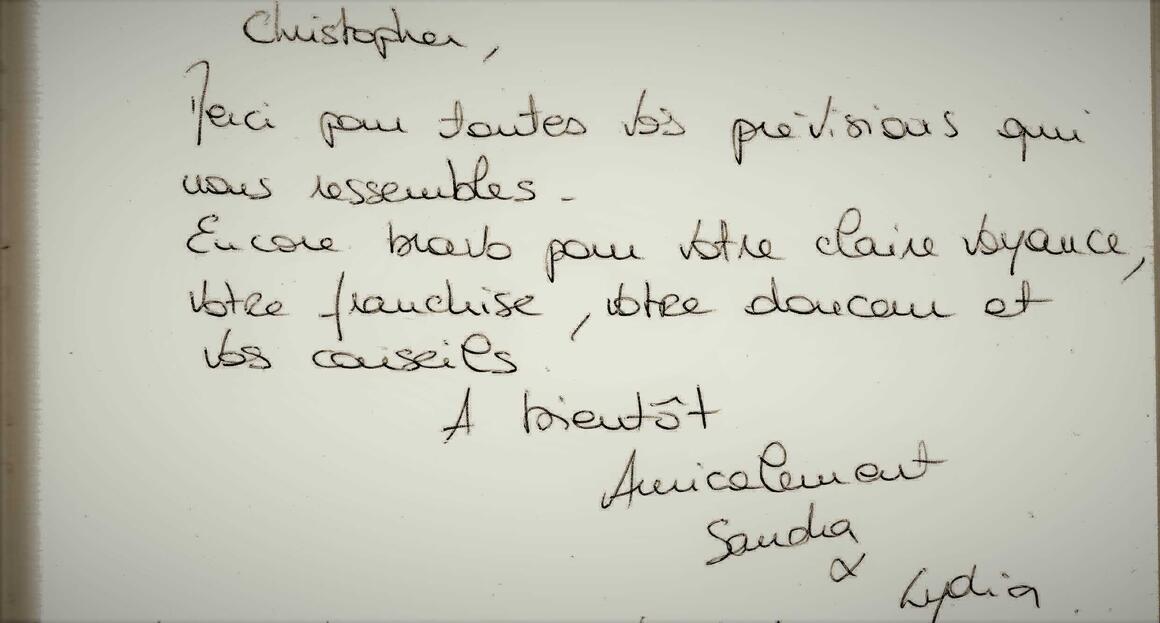 Christopher,
Merci pour toutes vos prévisions qui
nous ressembles.
Encore bravo pour votre claire voyance,
votre franchise, votre douceur et
vos conseils
A bientôt
Amicalement
Sandra
&
Lydia